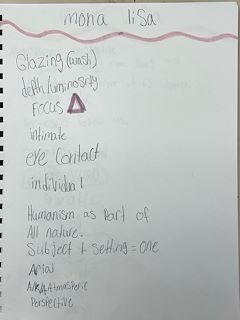 mona lisa
Glazing (wash)
depth/luminosity
FOCUS
intimate
eye contact
individual
Humanism as part of
All nature.
Subject + Setting = one
Arial
Atmosperic
Perspective